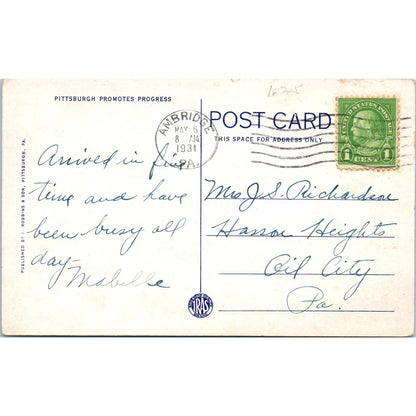 PITTSBURGH PROMOTES PROGRESS
PUBLISHED BY I. ROBBINS & SON, PITTSBURGH, PA.
Arrived in fine
time and have
been busy all
day-
Mabelle
AMBRIDGE
MAY 6
8 AM
1931
PA.
POST CARD
THIS SPACE FOR ADDRESS ONLY
UNITED STATES POSTAGE
1 CENT 1
Mrs J.S. Richardson
Hasson Heights
Oil City
Pa.